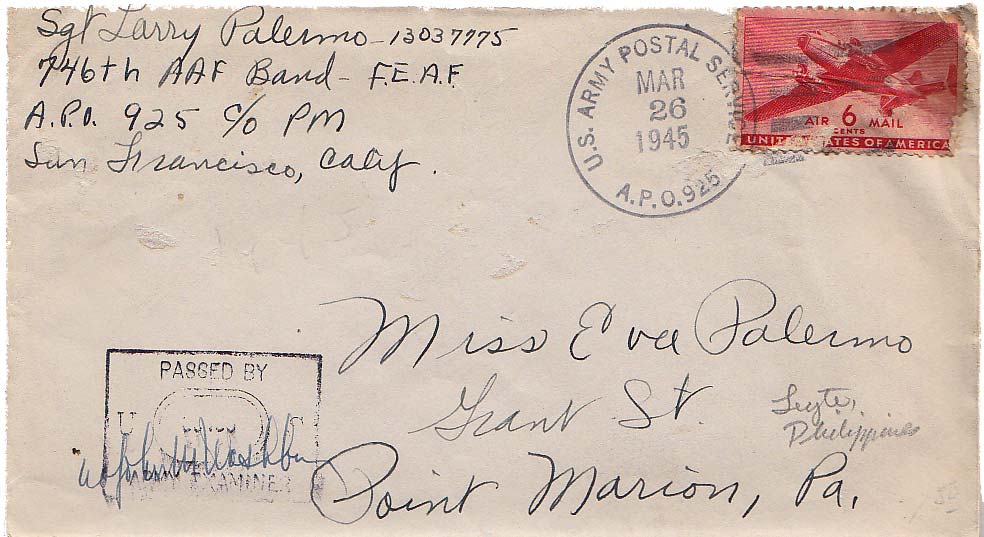 Sgt Larry Palermo - 13037775
746th AAF Band - F.E.A.F.
A.P.O. 925 c/o PM
San Francisco, Calif.
U.S. ARMY POSTAL SERVICE
MAR
26
1945
A.P.O. 925
AIR 6 MAIL
CENTS
UNITED STATES OF AMERICA
Miss Eva Palermo
Grant St.
Point Marion, Pa.
Leyte,
Philippines
PASSED BY
U S
EXAMINER